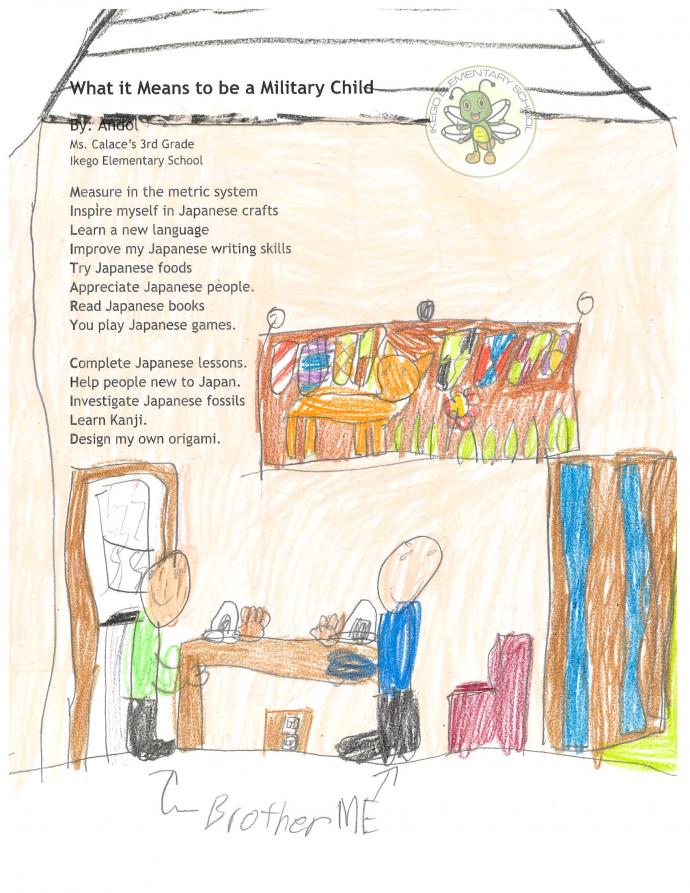 What it Means to be a Military Child
IKEGO ELEMENTARY SCHOOL
By: Andol
Ms. Calace's 3rd Grade
Ikego Elementary School
Measure in the metric system
Inspire myself in Japanese crafts
Learn a new language
Improve my Japanese writing skills
Try Japanese foods
Appreciate Japanese people.
Read Japanese books
You play Japanese games.
Complete Japanese lessons.
Help people new to Japan.
Investigate Japanese fossils
Learn Kanji.
Design my own origami.
Brother ME